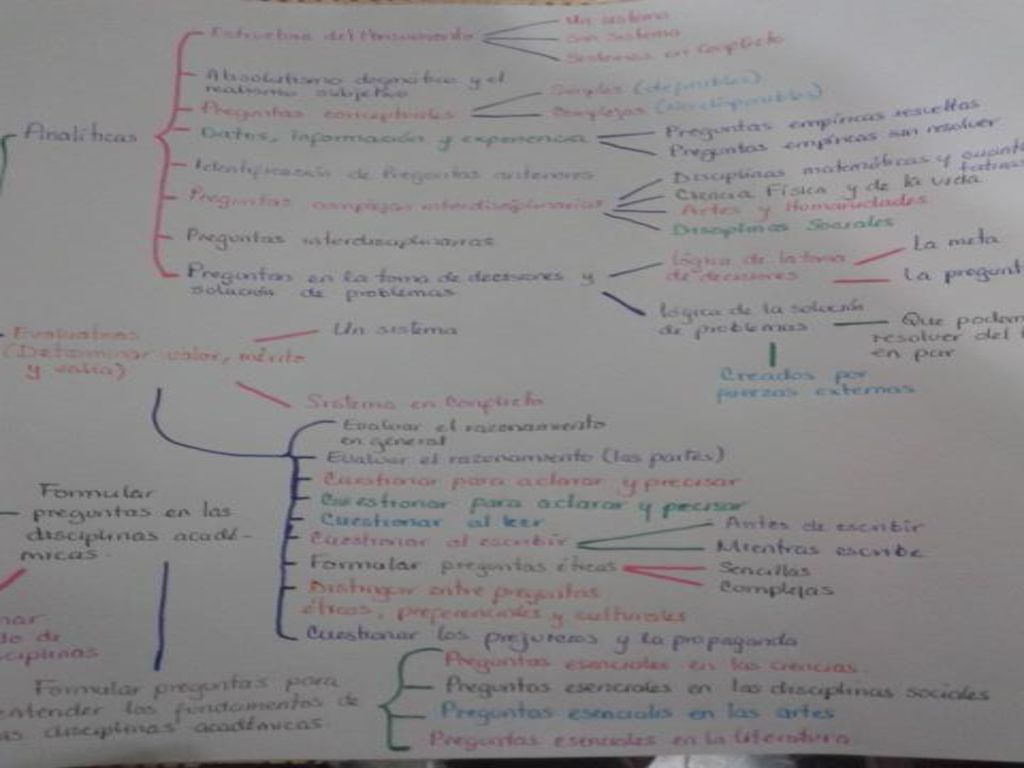 Estructura del Pensamiento
Un sistema
Sin sistema
Sistemas en Conflicto
Analíticas
Absolutismo dogmático y el
realismo subjetivo
Preguntas conceptuales
Simples (definibles)
Complejas
Datos, información y experiencia
Preguntas empíricas resueltas
Preguntas empíricas sin resolver
Identificación de Preguntas anteriores
Preguntas complejas interdisciplinarias
Disciplinas matemáticas y
Ciencia Física y de la vida
Artes y Humanidades
Disciplinas Sociales
Preguntas interdisciplinarias
Preguntas en la toma de decisiones y
solución de problemas
lógica de la toma
de decisiones
La meta
La pregunt
lógica de la solución
de problemas
Que podem
resolver del
en par
Creados por
fuerzas externas
Evaluativas
(Determinar valor, mérito
y valía)
Un sistema
Sistema en Conflicto
Evaluar el razonamiento
en general
Evaluar el razonamiento (las partes)
Cuestionar para aclarar y precisar
Cuestionar para aclarar y precisar
Cuestionar al leer
Cuestionar al escribir
Antes de escribir
Mientras escribe
Formular preguntas éticas
Sencillas
Complejas
Distinguir entre preguntas
éticas, preferenciales y culturales
Cuestionar los prejuicios y la propaganda
Formular
preguntas en las
disciplinas acadé-
micas.
nar
do de
sciplinas
Formular preguntas para
entender los fundamentos de
as disciplinas académicas
Preguntas esenciales en las ciencias.
Preguntas esenciales en las disciplinas sociales
Preguntas esenciales en las artes
Preguntas esenciales en la literatura